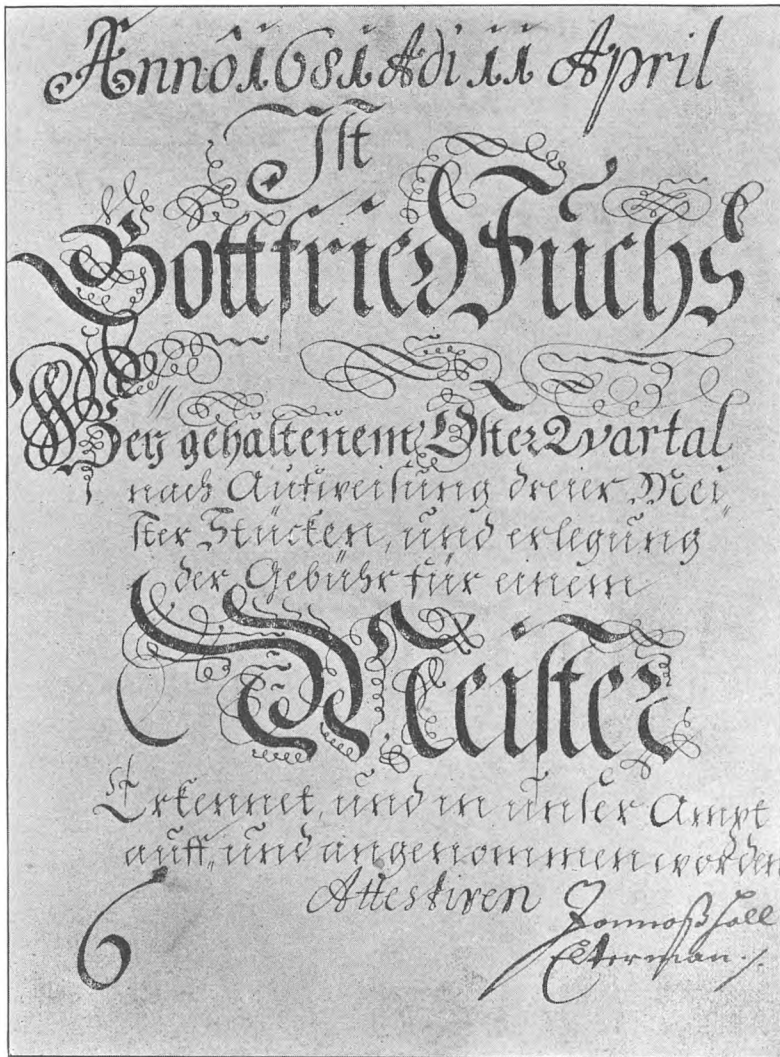 Anno 1681 Adi 11 April
Ist
Gottfried Fuchs
Bey gehaltenem Oster Qvartal
nach Aufweisung dreier Mei„
ster Stücken, und erlegung
der Gebühr für einem
Meister
Erkennet, und in unser Ampt
auff„ und angenommen worden
Attestiren
Elterman
6